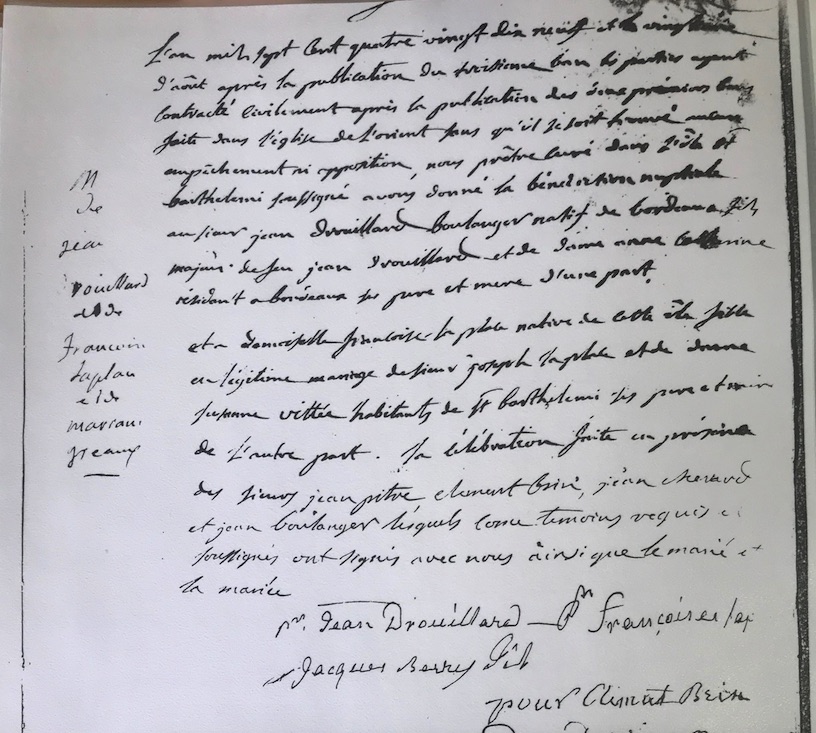 L'an mil sept cent quatre vingt dix neuf et le vingtieme
d'août après la publication du troisieme ban les parties ayant
contracté civilement après la publication des deux premiers bans
faite dans l'église de L'orient sans qu'il se soit trouvé aucun
empêchement ni opposition, nous prêtre curé dans l'île St
barthelemi soussigné avons donné la bénédiction nuptiale
au sieur jean Drouillard boulanger natif de bordeaux fils
majeur de feu jean Drouillard et de dame anne Catherine
résidant a bordeaux ses pere et mere d'une part,
et a demoiselle françoise la place native de cette île fille
en légitime mariage de sieur joseph la place et de dame
susanne vittée habitants de St barthelemi ses pere et mere
de l'autre part. la célébration faite en présence
des sieurs jean pitre clement brin, jean
et jean boulanger lesquels comme temoins requis et
soussignés ont signés avec nous ainsi que le marié et
la mariée
M
de
jean
Drouillard
et de
Francoise
laplace
et de
greaux
pr. Jean Drouillard pr françoise la
Jacques Berry fils
pour Climent Brin